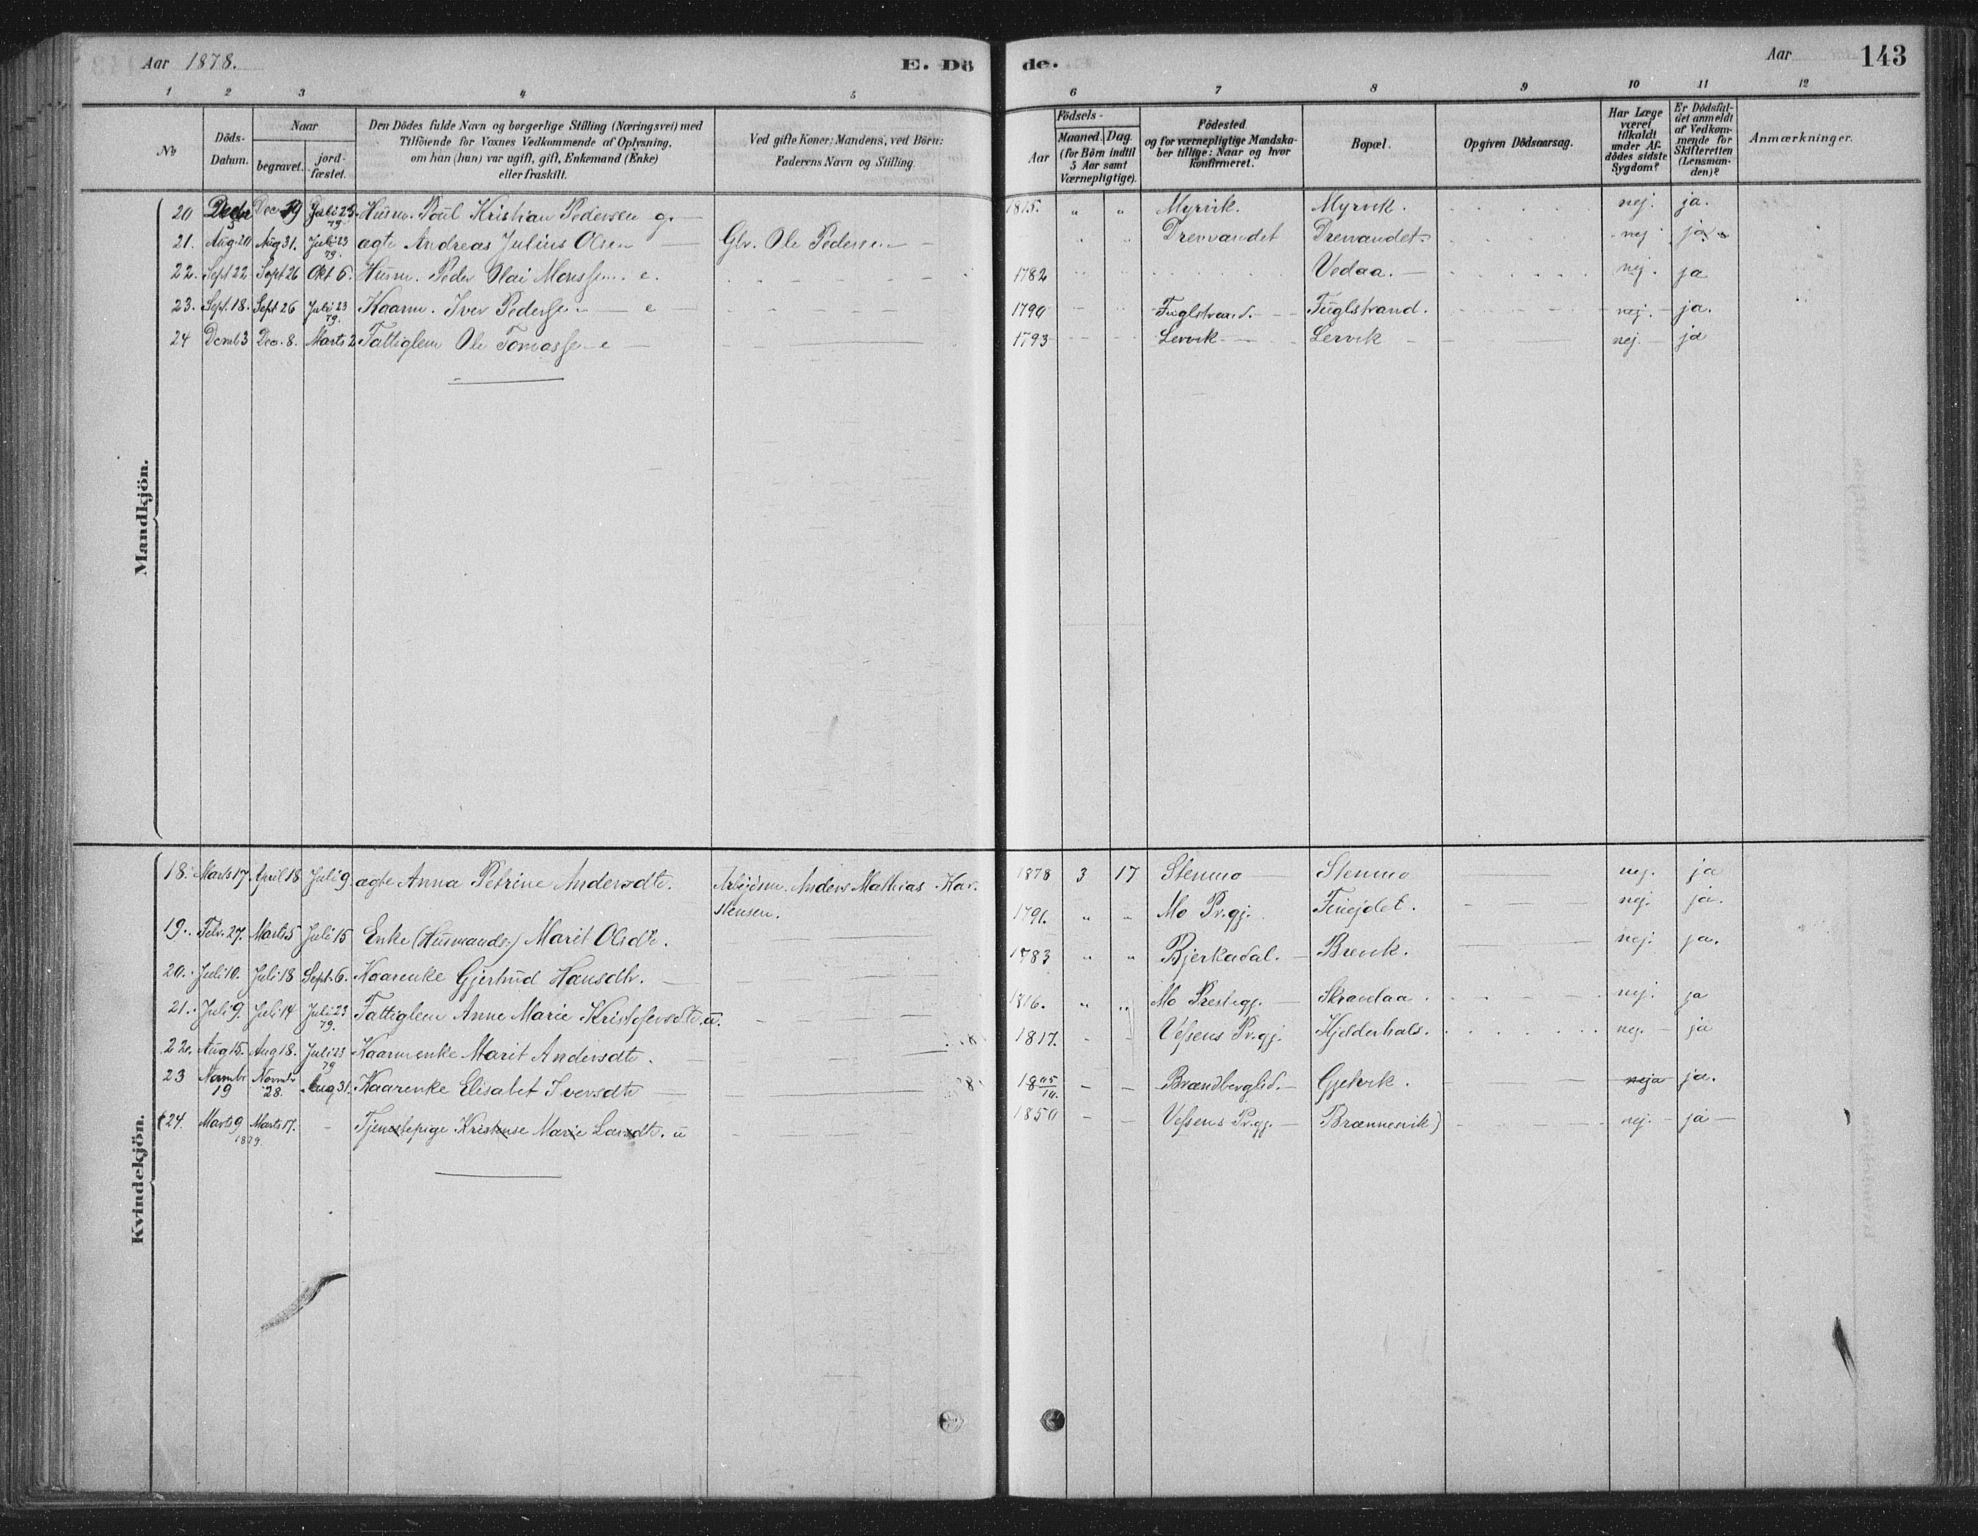 Aar 1878.
E. Dö
de.
Aar
143
1 2 3 4 5 6 7 8 9 10 11 12
No
Döds-
Datum.
Naar
begravet.
jord-
fæstet.
Den Dödes fulde Navn og borgerlige Stilling (Næringsvei) med
Tilföiende for Voxnes Vedkommende af Oplysning,
om han (hun) var ugift, gift, Enkemand (Enke)
eller fraskilt.
Ved gifte Koner: Mandens, ved Börn:
Faderens Navn og Stilling.
Födsels-
Aar
Maaned. Dag.
(for Börn indtil
5 Aar samt
Værnepligtige).
Födested
og for værnepligtige Mandska-
ber tillige: Naar og hvor
konfirmeret.
Bopæl.
Opgiven Dödsaarsag.
Har Læge
været
tilkaldt
under Af-
dödes sidste
Sygdom?
Er Dödsfal-
det anmeldt
af Vedkom-
mende for
Skifteretten
(Lensman-
den)?
Anmærkninger.
Mandkjön.
20 Decbr 5 Dec 19 Juli 23. 79. Husm. Poul Kristian Pedersen g. 1815. " " Myrvik. Myrvik. nej. ja.
21. Aug 20 Aug 31. Juli 23 79. ægte Andreas Julius Olsen Gbr. Ole Pedersen " " Drevvandet Drevvandet nej ja
22. Sept 22 Sept 26 Okt 6. Husm. Peder Olai Monssen e. 1782 Vedaa. nej. ja
23. Sept. 18. Sept 26 Juli 23 79. Kaarm. Iver Pedersen e 1790 Fuglstrand. Fuglstrand. nej. ja.
24 Decmb 3 Dec. 8. Marts 2 Fattiglem Ole Tomassen e 1793 Lervik Lervik nej. ja
Kvindekjön.
18. Marts 17 April 18 Juli 9. ægte Anna Petrine Andersdtr. Arbejdsm. Anders Mathias Kar-
stensen. 1878 3 17 Stenmo Stenmo nej. ja
19. Febr. 27. Marts 5 Juli 15 Enke (Husmands-) Marit Olsdtr. 1791. " " Mo Pr.gj. nej. ja.
20. Juli 10. Juli 18 Sept. 6. Kaarenke Gjertrud Hansdtr. 1783 " " Bjerkadal. Brevik. nej. ja.
21. Juli 9. Juli 14 Juli 23 79. Fattiglem Anne Marie Kristofersdtr. u. 1816. " " Mo Prestegj. nej. ja
22. Aug 15. Aug 18. Juli 23 79 Kaarmenke Marit Andersdtr. 1817. Vefsens Pr.gj. Hjelderhals. nej. ja
23 Novmbr 19 Novmbr 28. Aug 31. Kaarenke Elisabet Iversdtr Brændberglid. Gjelvik. neja ja.
(24. Marts 9 Marts 17. 1879. Tjenestepige Kristense Marie Larsdtr. u 1850 Vefsens Pr.gj. Brænnesvik) nej. ja